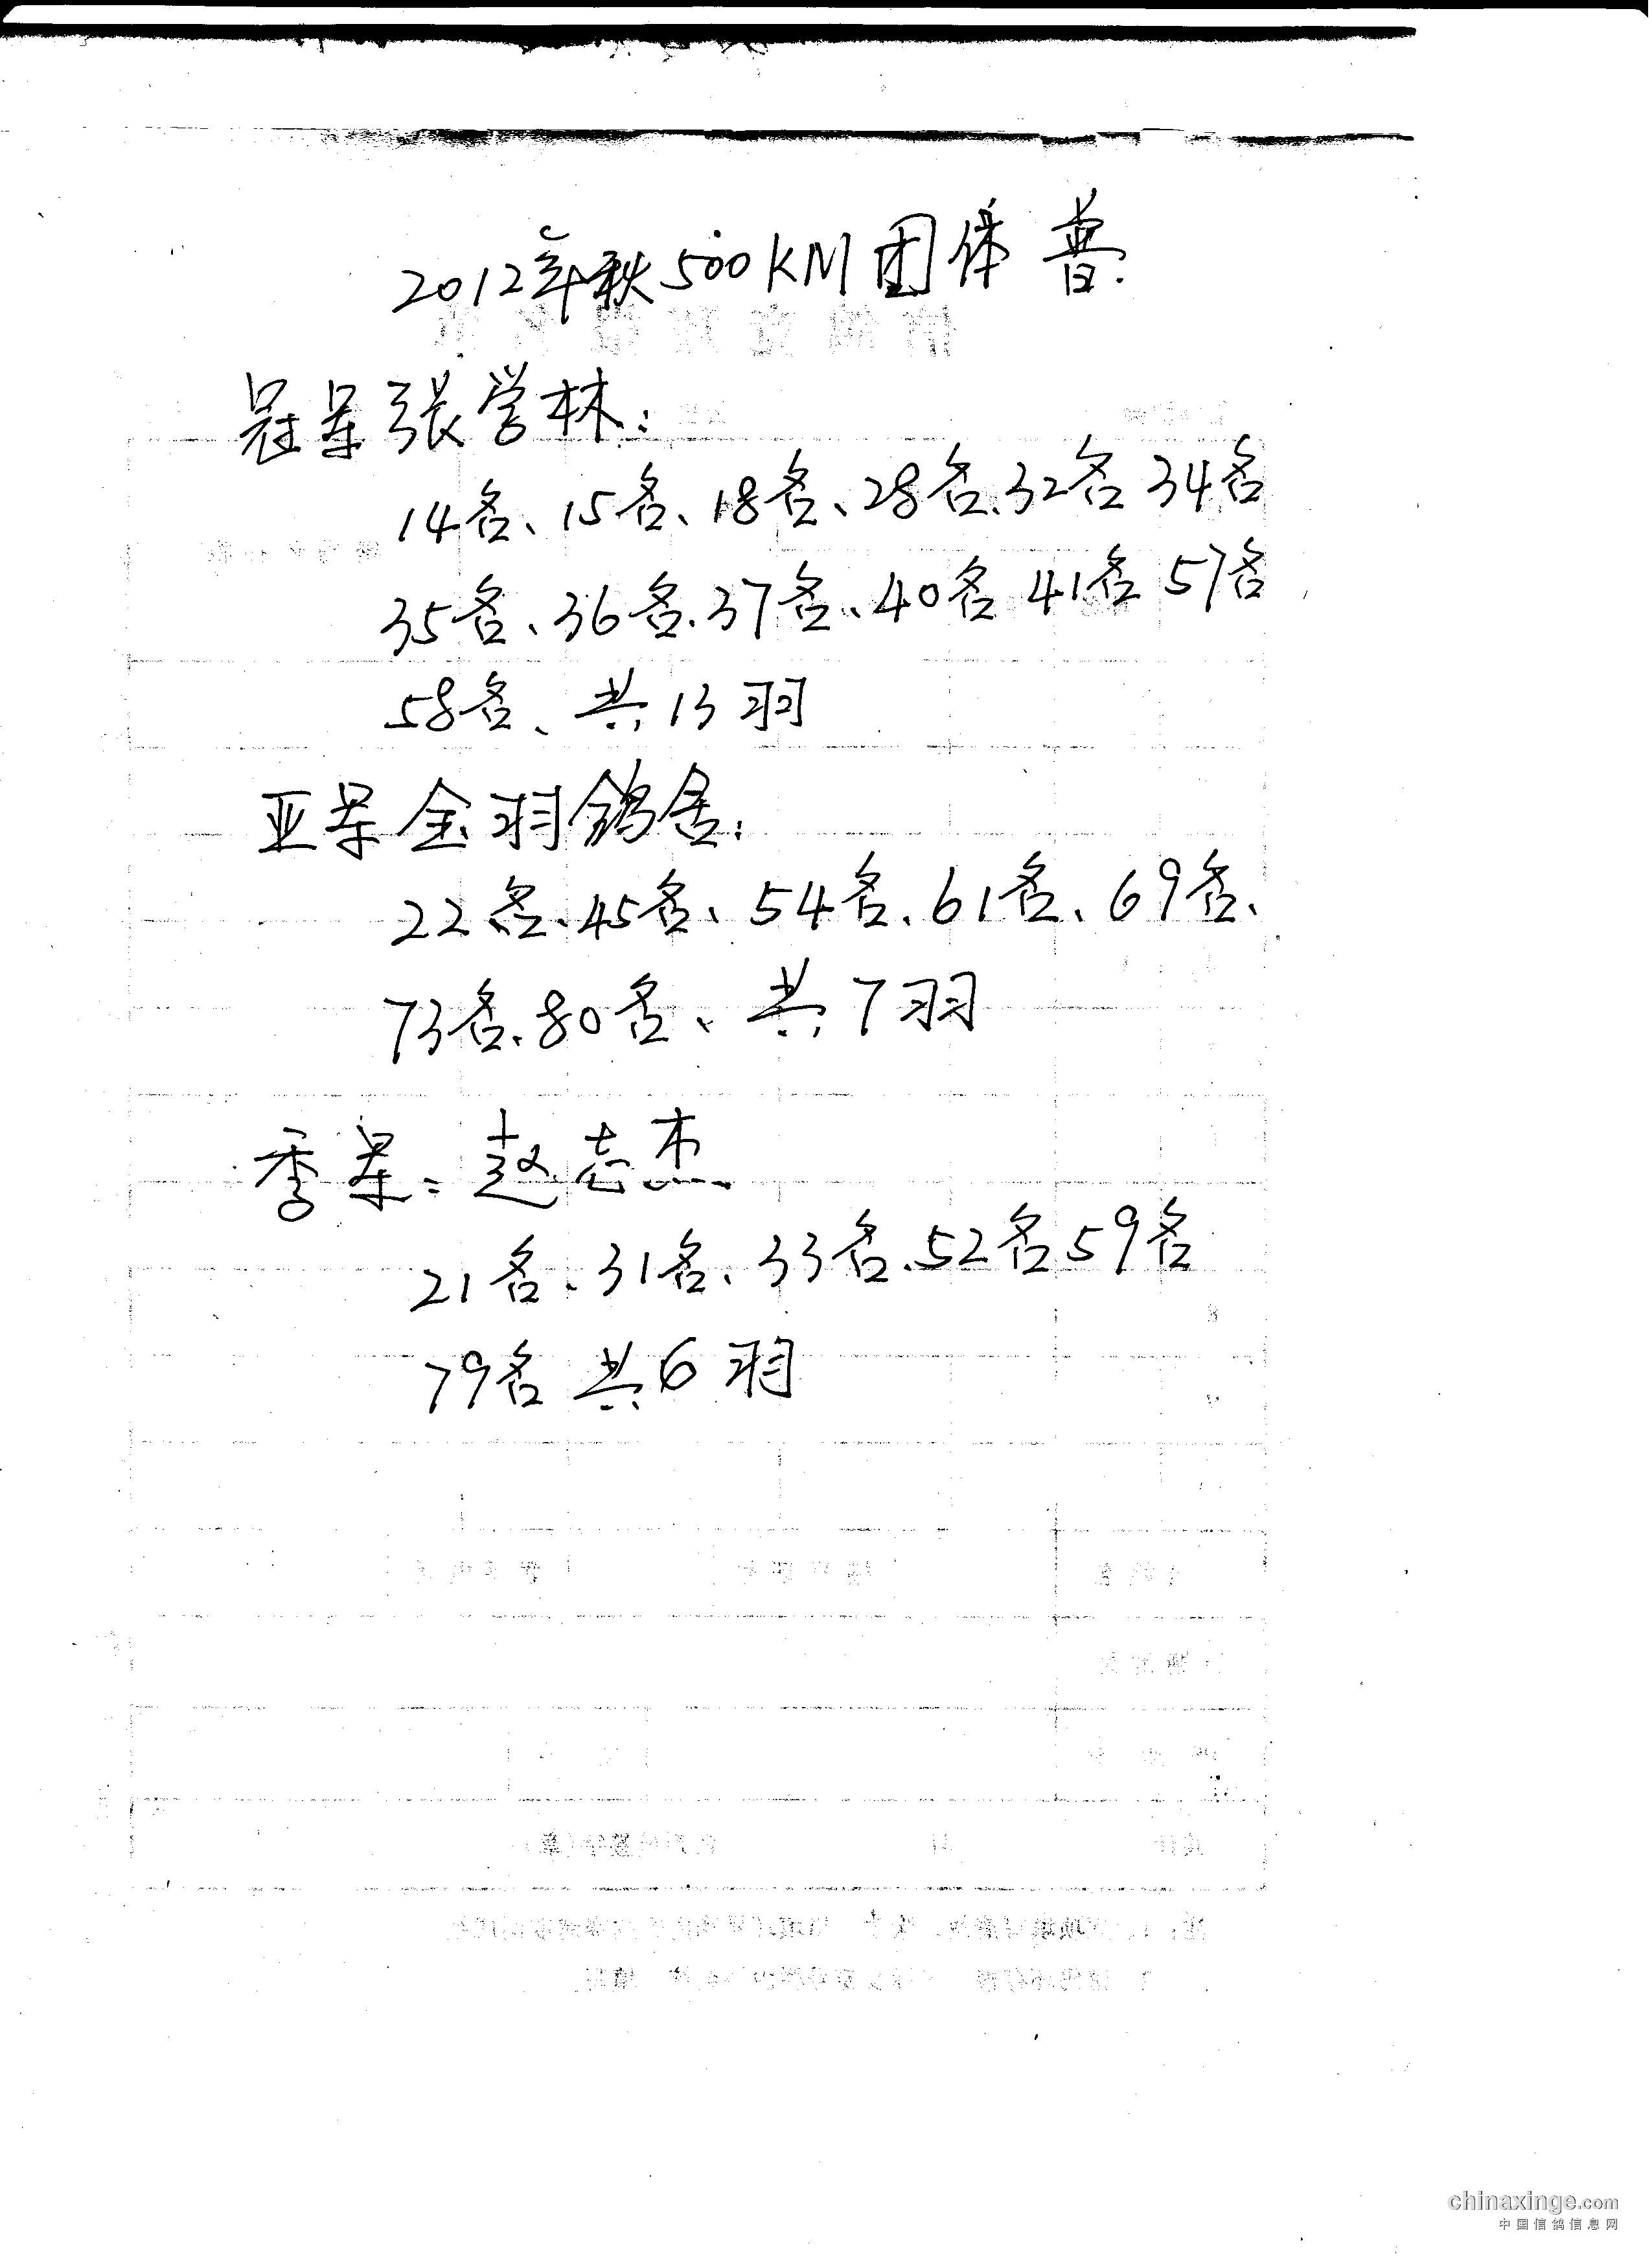 2012年秋500KM团体普.
冠军张学林:
14名、15名、18名、28名.32名34名
35名、36名.37名、40名41名57名
58名、共13羽
亚军金羽鸽舍:
22名、45名、54名、61名、69名、
73名、80名、共7羽
季军:赵志杰
21名、31名、33名、52名59名
79名共6羽
chinaxinge.com
中国信鸽信息网